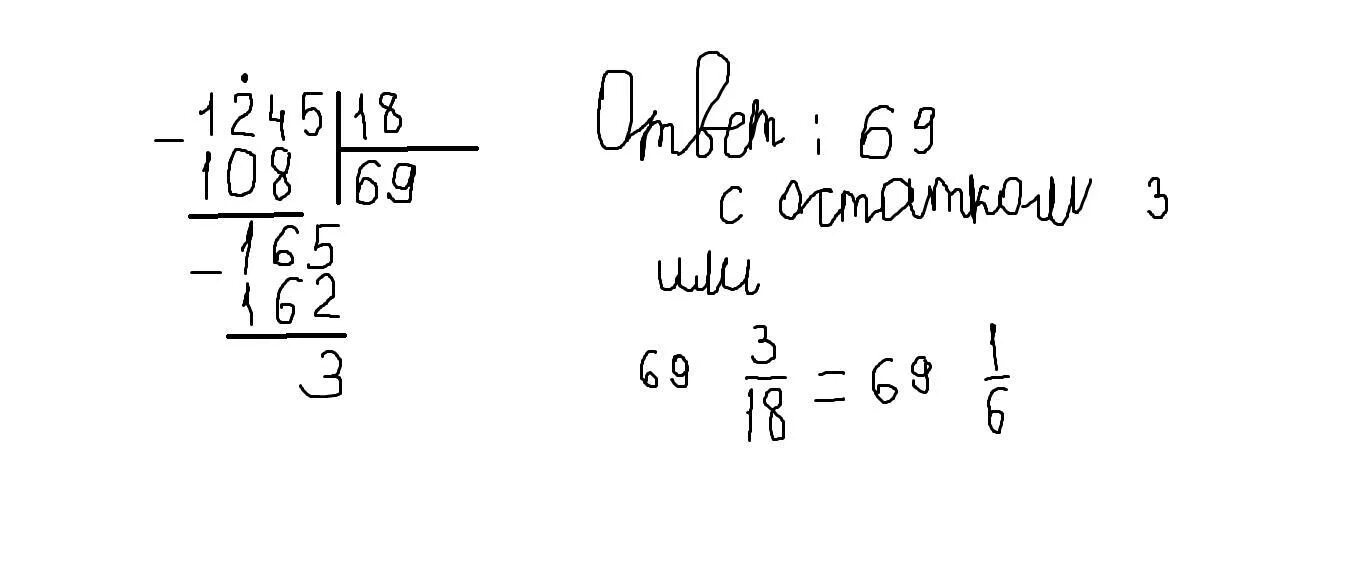 - 1245 | 18
108 | 69
- 165
162
3
Ответ : 69
с остатком 3
или
69 3/18 = 69 1/6